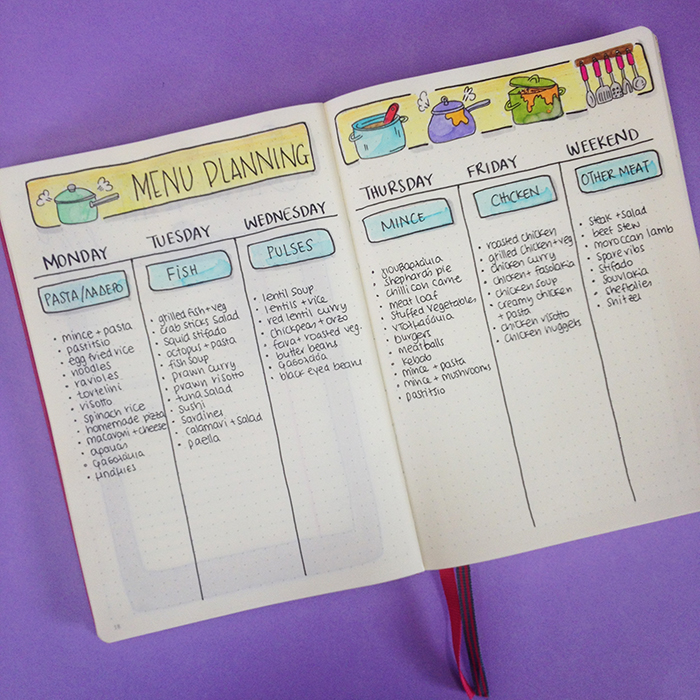 MENU PLANNING
MONDAY
PASTA/ΛΑΔΕΡΟ
• mince + pasta
• pastitsio
• egg fried rice
• noodles
• ravioles
• tortelini
• risotto
• spinach rice
• homemade pizza
• macaroni + cheese
• φασολάκια
• μπάμιες
TUESDAY
FISH
• grilled fish + veg
• crab sticks salad
• squid stifado
• octopus + pasta
• fish soup
• prawn curry
• prawn risotto
• tuna salad
• sushi
• sardines
• calamari + salad
• paella
WEDNESDAY
PULSES
• lentil soup
• lentils + rice
• red lentil curry
• chickpeas + orzo
• fava + roasted veg.
• butter beans
• φασολάδα
• black eyed beans
THURSDAY
MINCE
• γιουβαρλάκια
• shephard's pie
• chilli con carne
• meat loaf
• stuffed vegetables
• ντολμαδάκια
• burgers
• meatballs
• kebab
• mince + pasta
• mince + mushrooms
• pastitsio
FRIDAY
CHICKEN
• roasted chicken
• grilled chicken + veg
• chicken curry
• chicken + fasolakia
• chicken soup
• creamy chicken
+ pasta
• chicken risotto
• chicken nuggets
WEEKEND
OTHER MEAT
• steak + salad
• beef stew
• moroccan lamb
• spare ribs
• stifado
• souvlakia
• sheftalies
• snitzel